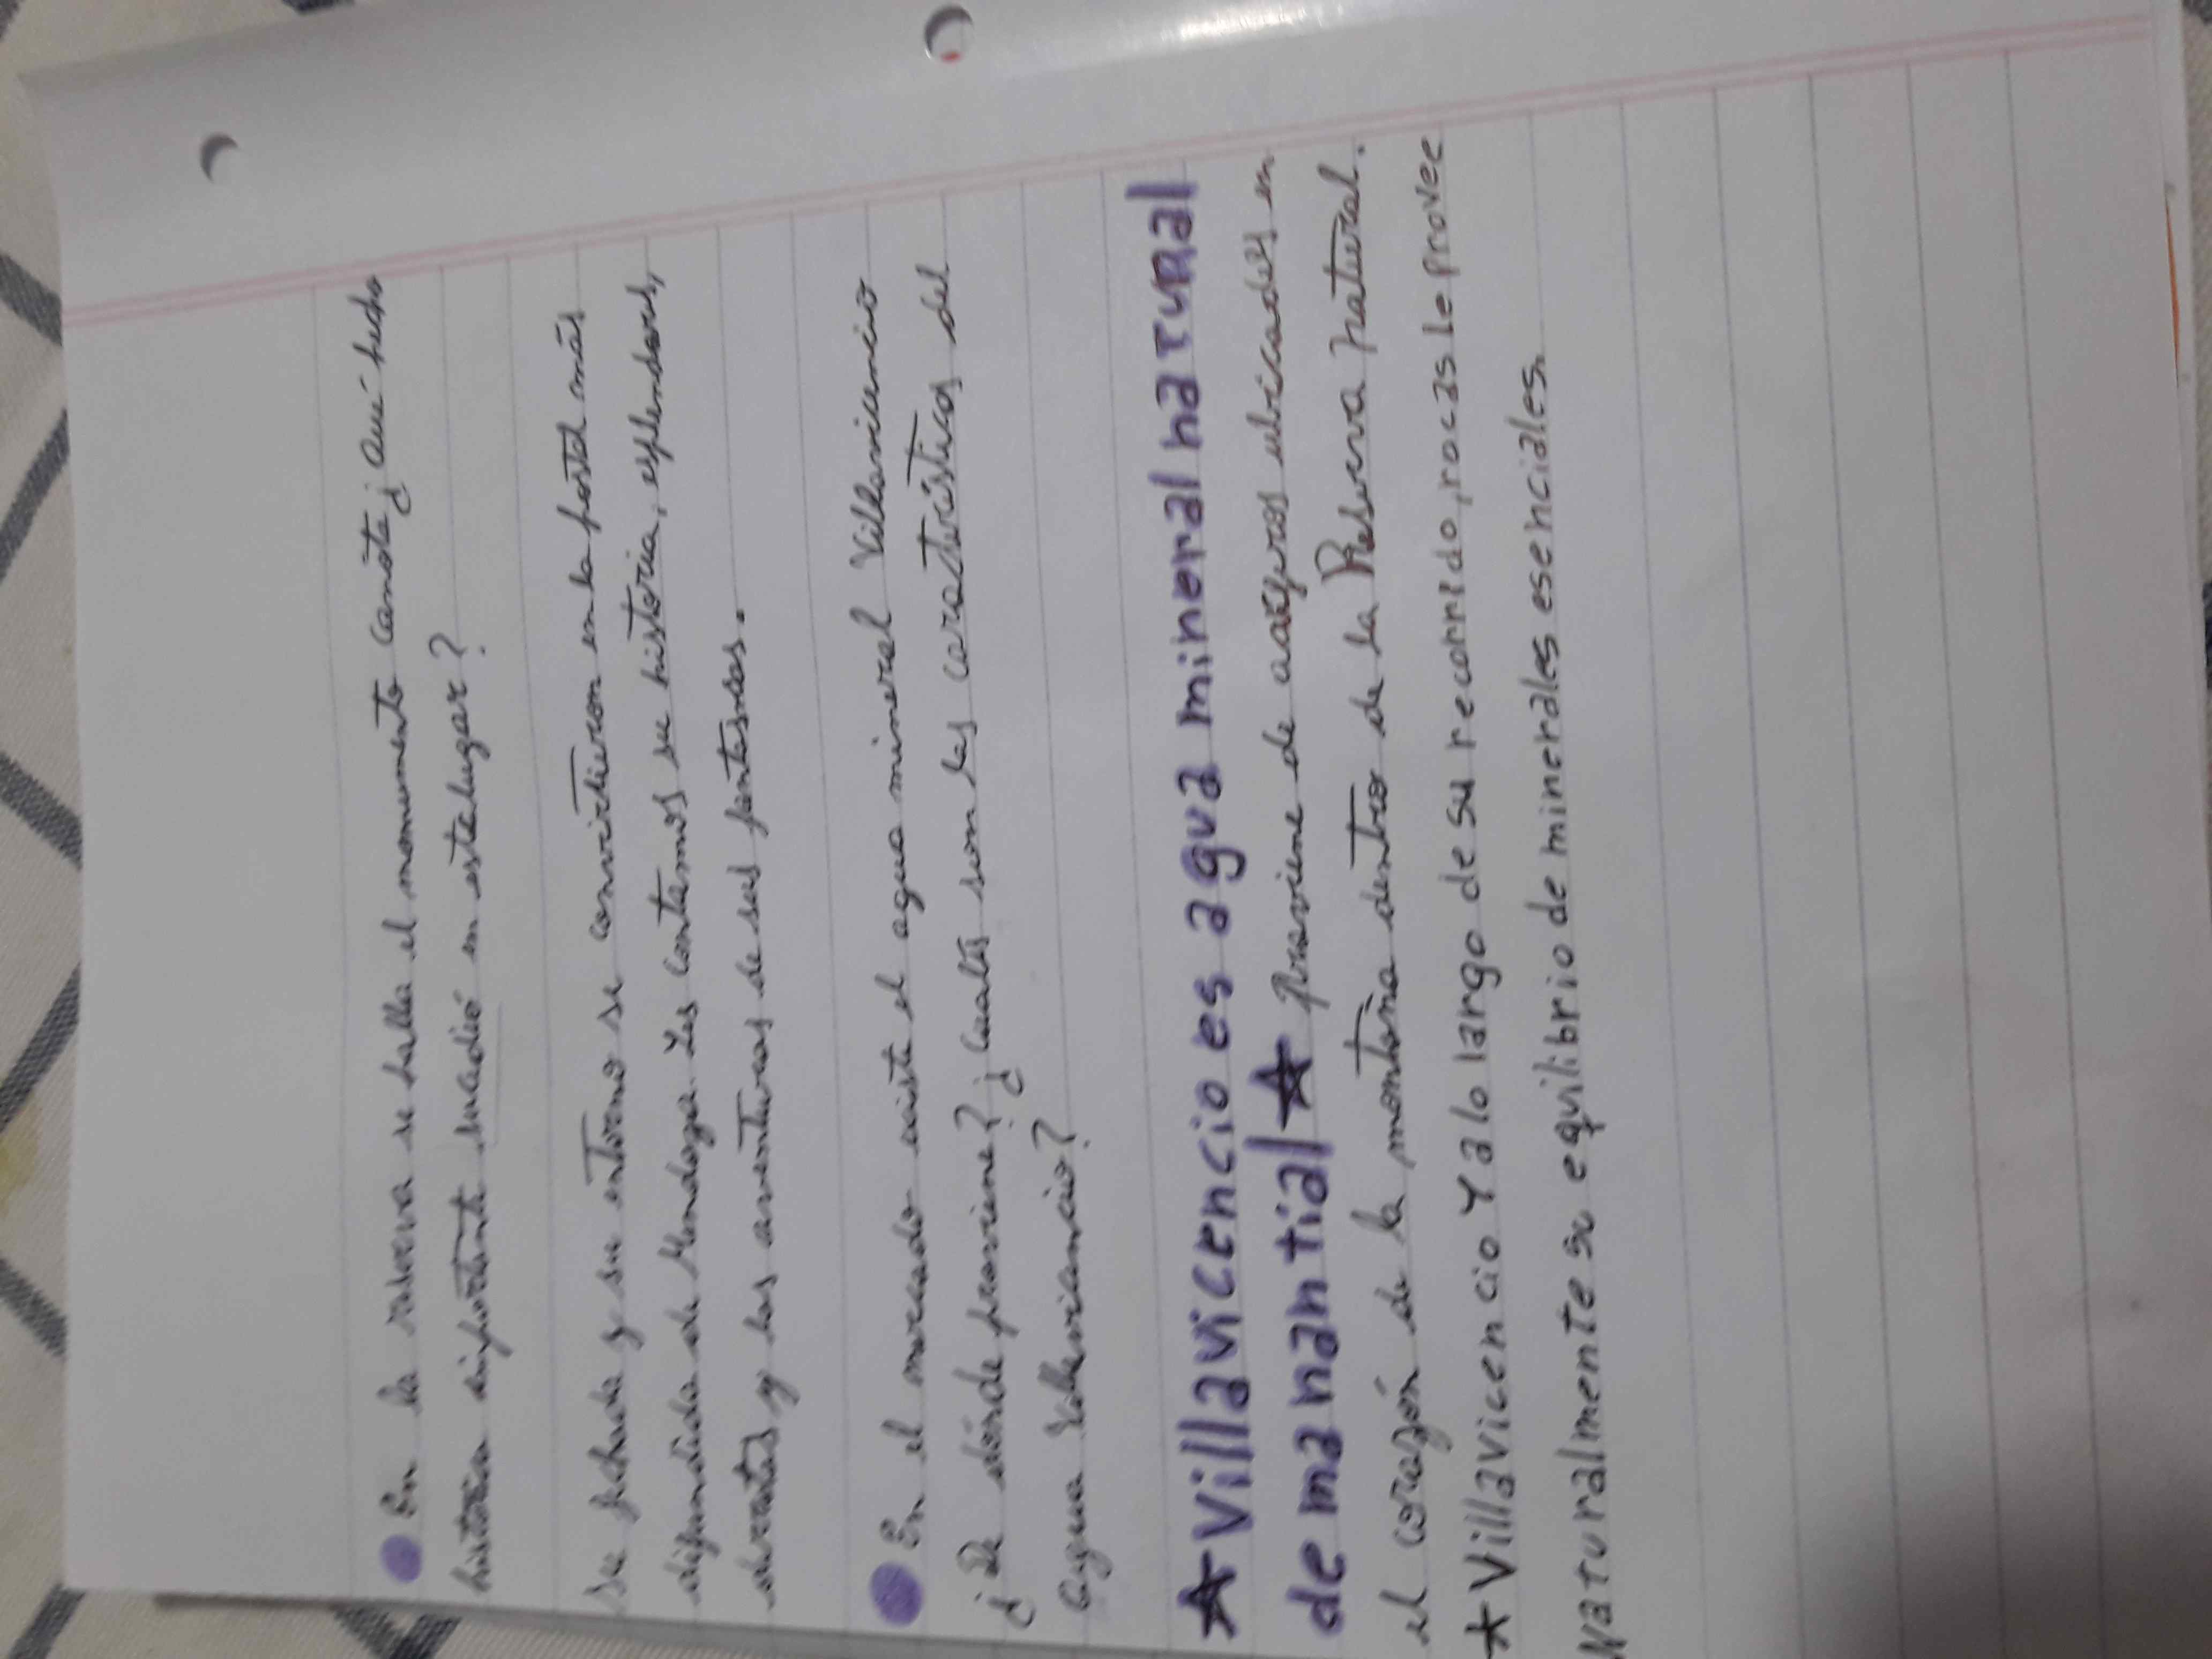 En la reserva se halla el monumento Canota ¿qué hecho
historia importante sucedió en este lugar?
Su fachada y su entorno se convirtieron en la postal más
difundida de Mendoza. Les contamos su historia, esplendores,
derrotas y las aventuras de sus fantasmas.
En el mercado existe el agua mineral Villavicencio
¿De dónde proviene? ¿Cuales son las caracteristicas del
agua Villavicencio?
★Villavicencio es agua mineral natural
de manantial★ proviene de acuíferos ubicados en
el corazón de la montaña dentro de la Reserva natural.
★Villavicencio Y a lo largo de su recorrido, rocas le provee
Naturalmente su equilibrio de minerales esenciales.